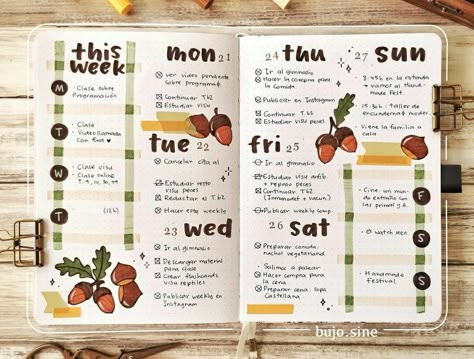 this
week
M
- Clase sobre
Programación
T
- Clase
- Videollamada
con Eva ♥
W
- Clase visu
- Clase saline
T. 9, 10, 30, 44
T
(12h)
mon 21
ver video pendiente
sobre programat
Continuar T.62
Estudiar visu
tue 22
Cancelar cita al
Estudiar resto
visu peces
Redactar el T.62
Hacer este weekly
23 wed
Ir al gimnasio
Descargar material
para clase
Crear flashcards
visu reptiles
Publicar weekly en
Instagram
24 thu
Ir al gimnasio
Hacer la compra para
la comida
Publicar en Instagram
Continuar T.62
Estudiar visu peces
fri 25
Ir al gimnasio
Estudiar visu anfib.
+ repaso peces
Continuar T.62
(Inmunodef. + vacun.)
Publicar weekly comp.
26 sat
Preparar comida:
nachos vegetarianos
Salimos a pasear
Hacer compra para
la cena
Preparar cena: sopa
Castellana
27 sun
8:45h en la rotonda
→ vamos al Hand-
made Fest.
15:30h: Taller de
encuadernar moder.
Viene la familia a
casa
F
- Cine: un mun-
do extraño con
las primas y J.
S
watch men
S
Handmade
Festival
bujo.sine